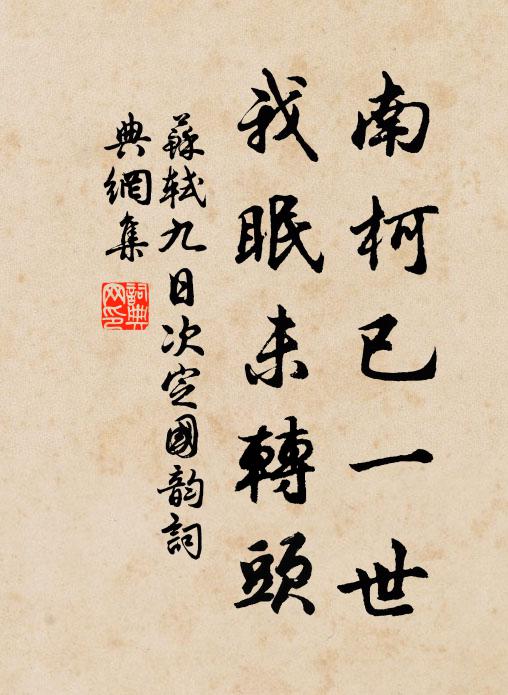 南柯已一世
我眠未轉頭
蘇軾九日次定國韵詞
典網集
詞典網印